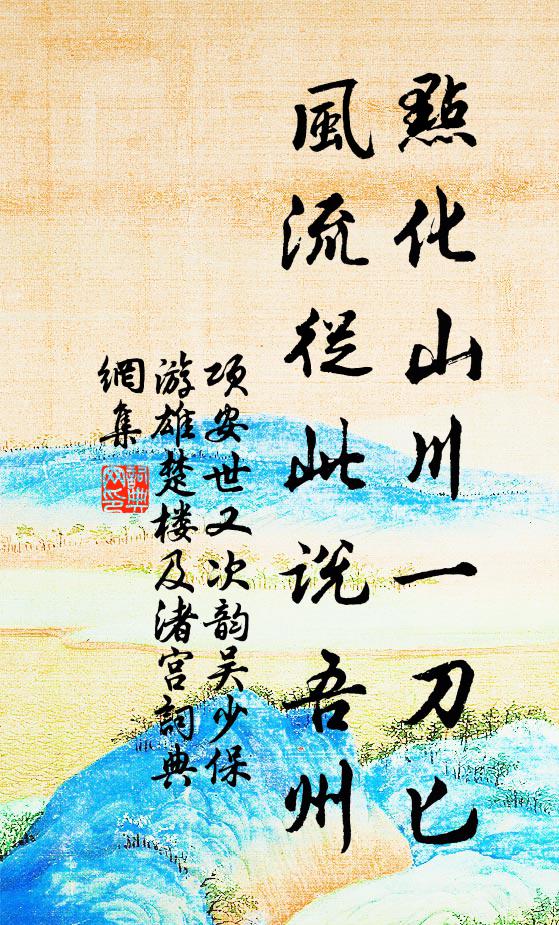 點化山川一刀匕
風流從此説吾州
項安世又次韵吴少保
游雄楚楼及渚宫詞典
網集
詞典網印